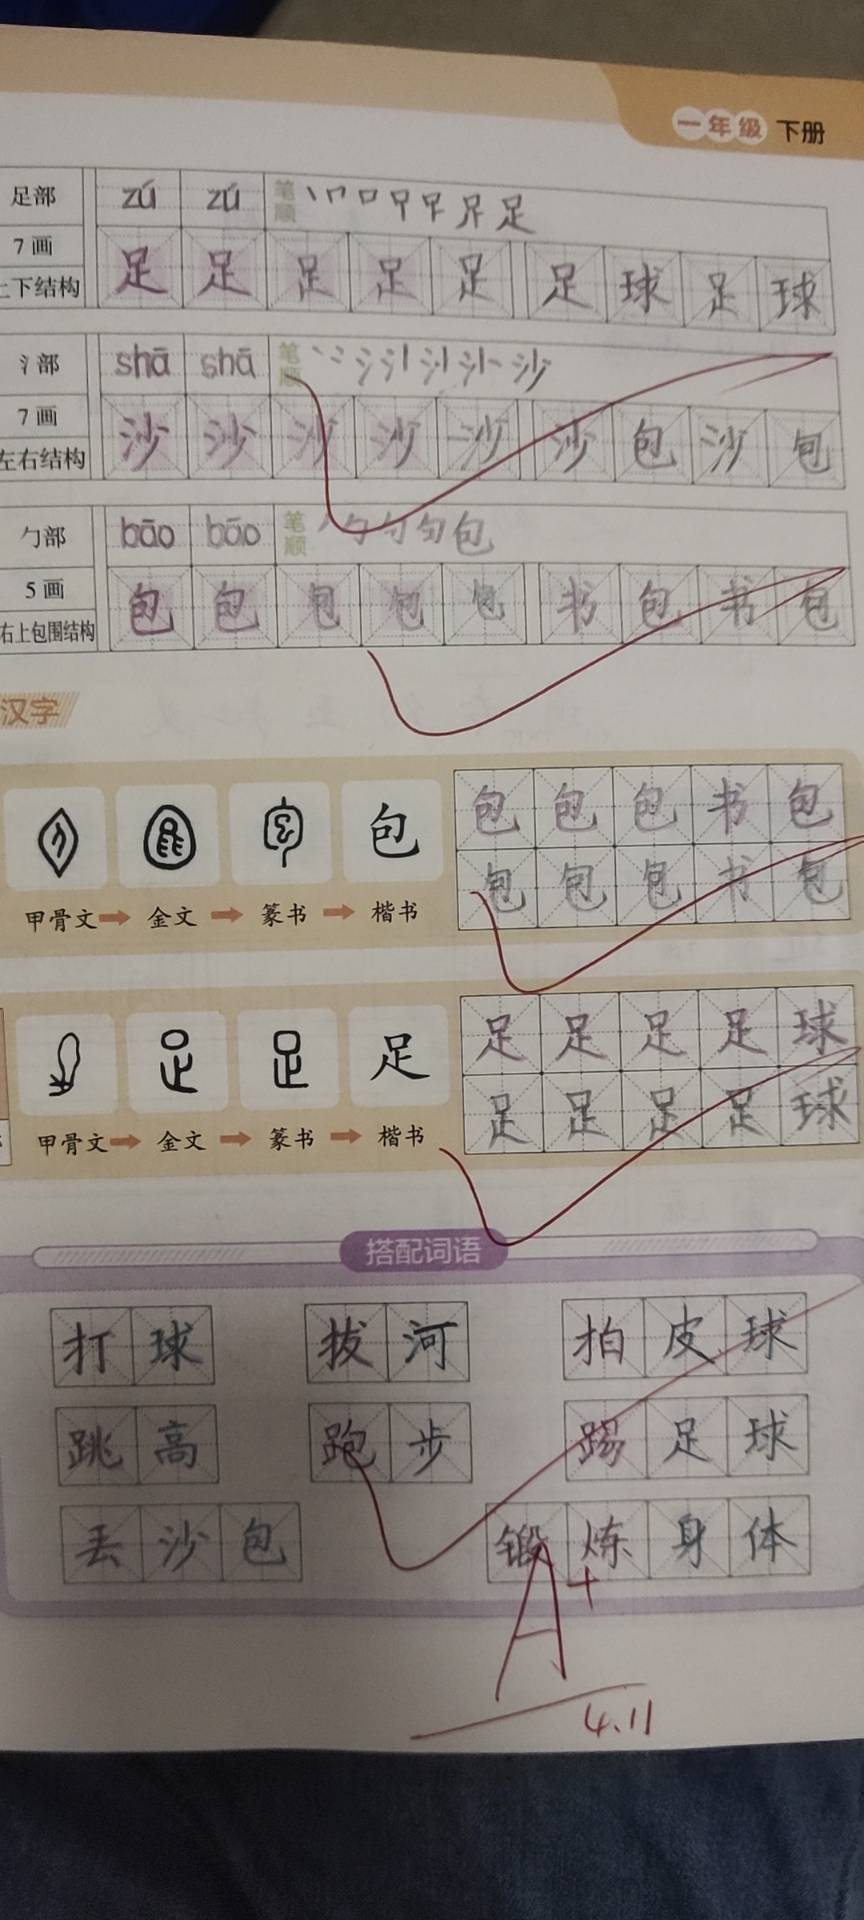 一年级 下册
足部 zú zú 笔顺 丨 口 口 早 早 足 足
7画
上下结构 足 足 足 足 足 足 球 足 球
氵部 shā shā 笔顺 沙
7画
左右结构 沙 沙 沙 沙 沙 沙 包 沙 包
勹部 bāo bāo 笔顺 勹 勺 匀 包
5画
右上包围结构 包 包 包 包 包 书 包 书 包
汉字
包 包 包 包 书 包
包 包 包 书 包
甲骨文 金文 篆书 楷书
足 足 足 足 足 球
足 足 足 足 球
甲骨文 金文 篆书 楷书
搭配词语
打球 拔河 拍皮球
跳高 跑步 踢足球
丢沙包 锻炼身体
A+
4.11